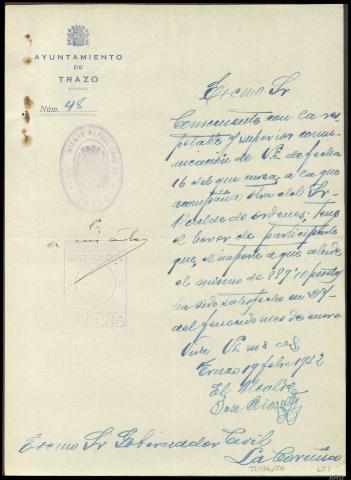 AYUNTAMIENTO
DE
TRAZO
Núm. 48
Excmo Sr
Consecuente con la res
petable y superior comu-
nicación de V.E. de fecha
16 del que cursa, a la que
acompaña otra del Sr.
Alcalde de Ordenes, tengo
el honor de participarle
que, el importe a que alude
el mismo de 287'10 pesetas
ha sido satisfecho en 27
del fenecido mes de enero
Viva V.E. m s a s
Trazo 19 febro 1932
El Alcalde
José Rios
ENTRADA
CORUÑA
Excmo Sr Gobernador Civil
La Coruña